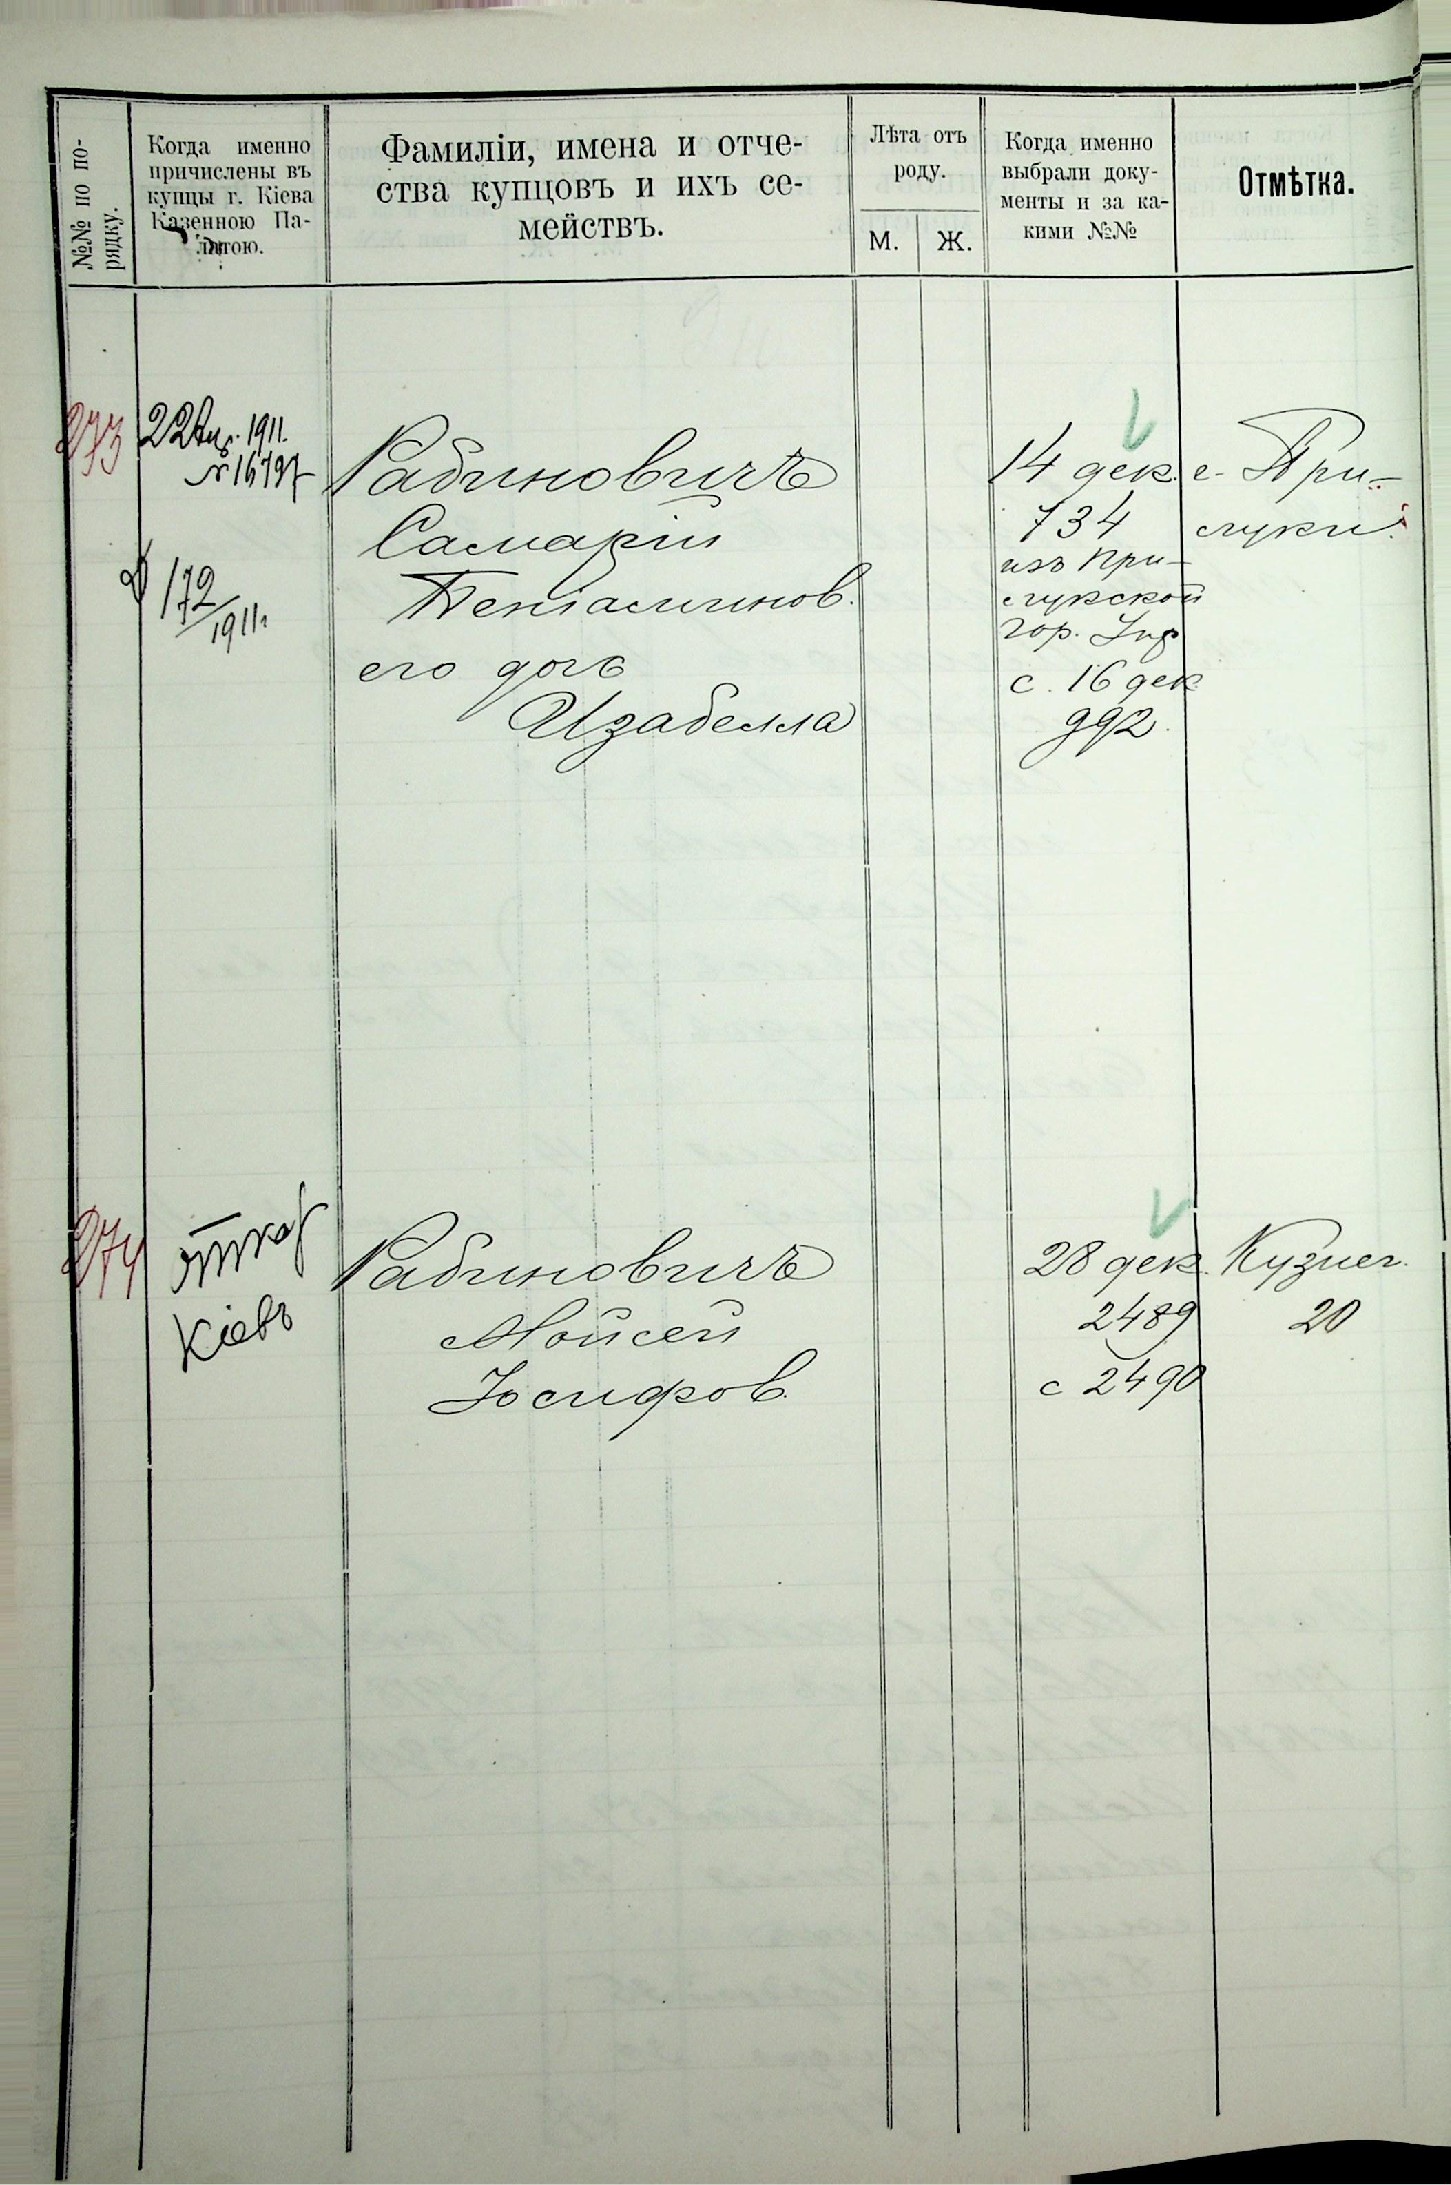 №№ по по-
рядку.
Когда именно
причислены въ
купцы г. Кіева
Казенною Па-
латою.
Фамиліи, имена и отче-
ства купцовъ и ихъ се-
мействъ.
Лѣта отъ
роду.
М.
Ж.
Когда именно
выбрали доку-
менты и за ка-
кими №№
Отмѣтка.
273
22 1911.
172
1911г
Рабиновичъ
Самарій
Веніаминов.
его дочь
Изабелла
14 дек.
734
изъ При-
лукской
гор.
с. 16 дек
992.
с. При-
луки.
274
Кіевъ
Рабиновичъ
Мойсей
Іосифов.
28 дек.
2489
с 2490
Кузнеч.
20